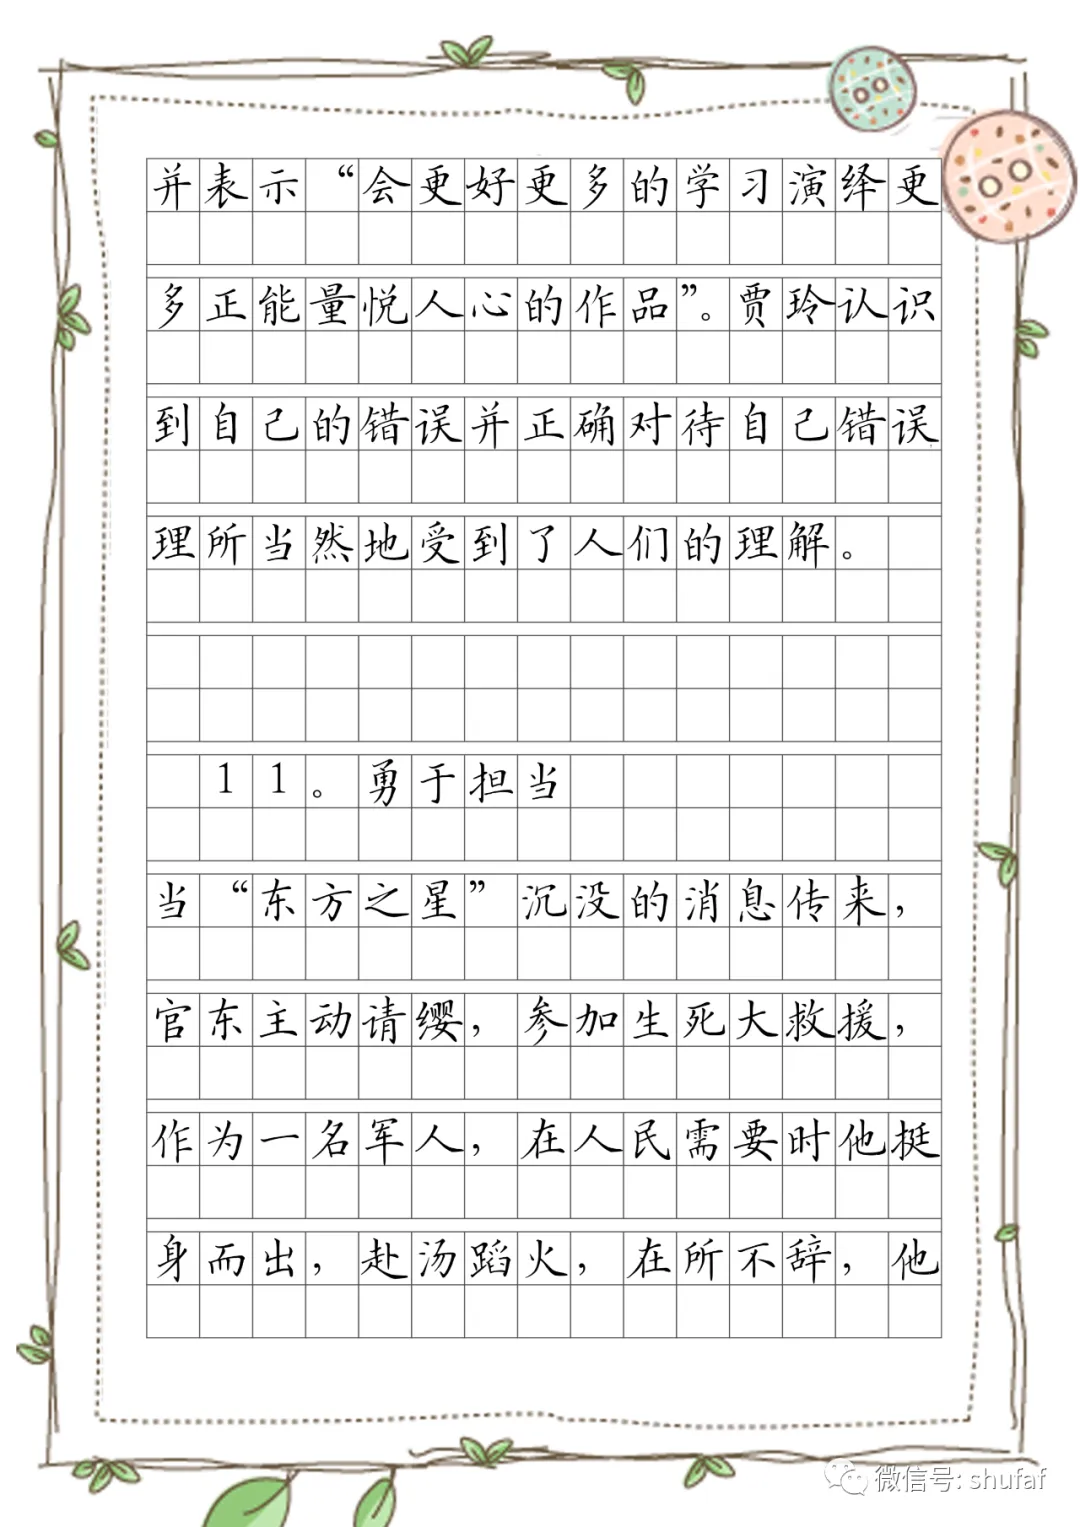 并表示“会更好更多的学习演绎更
多正能量悦人心的作品”。贾玲认识
到自己的错误并正确对待自己错误
理所当然地受到了人们的理解。
11。勇于担当
当“东方之星”沉没的消息传来，
官东主动请缨，参加生死大救援，
作为一名军人，在人民需要时他挺
身而出，赴汤蹈火，在所不辞，他
微信号: shufaf